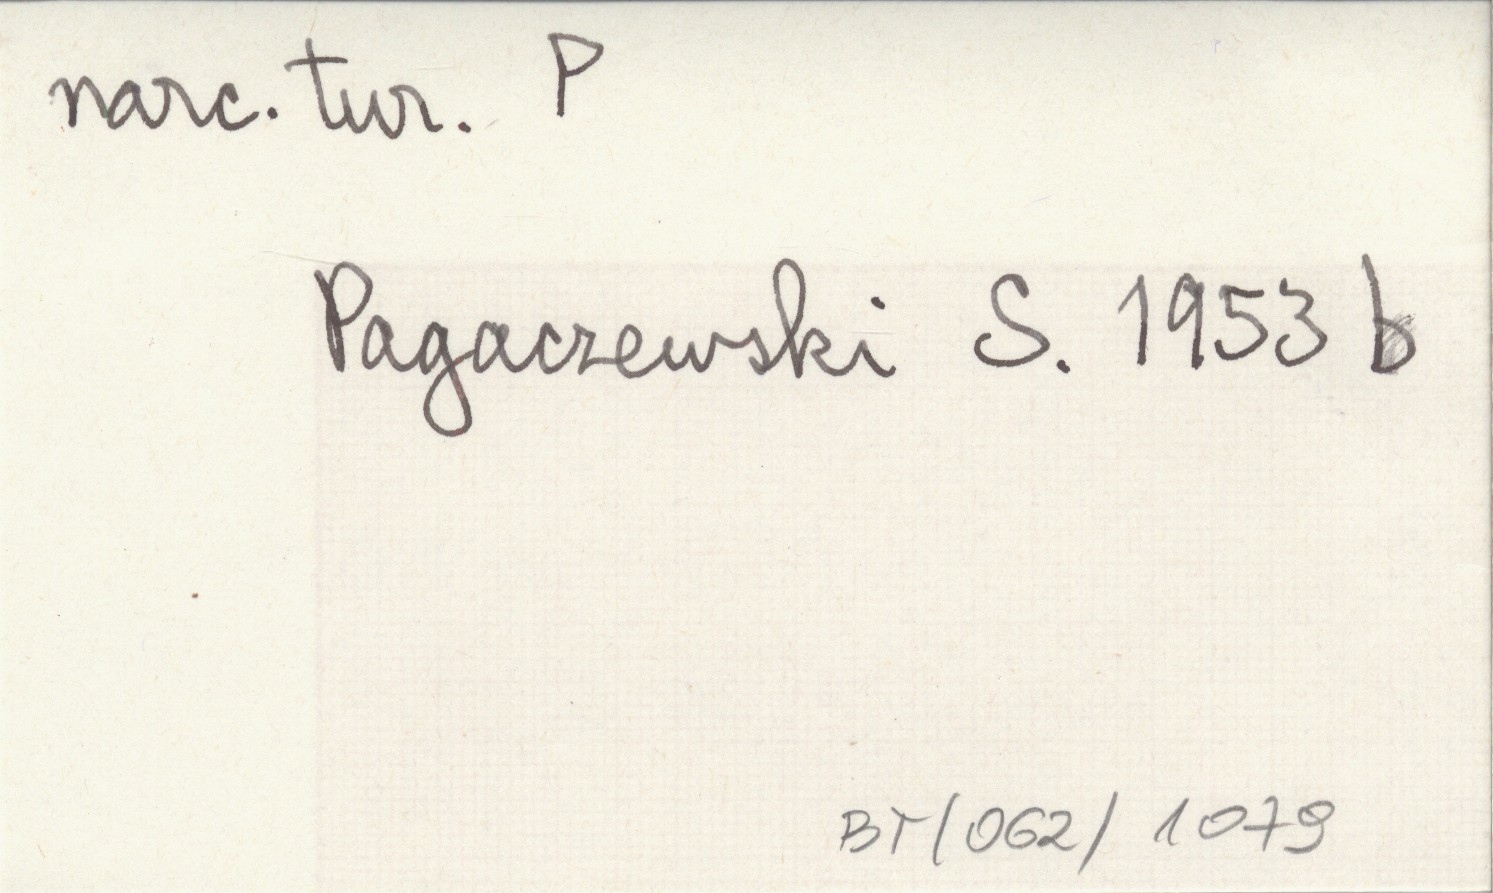 narc. tur. P
Pagaczewski S. 1953 b
BT/062/ 1079